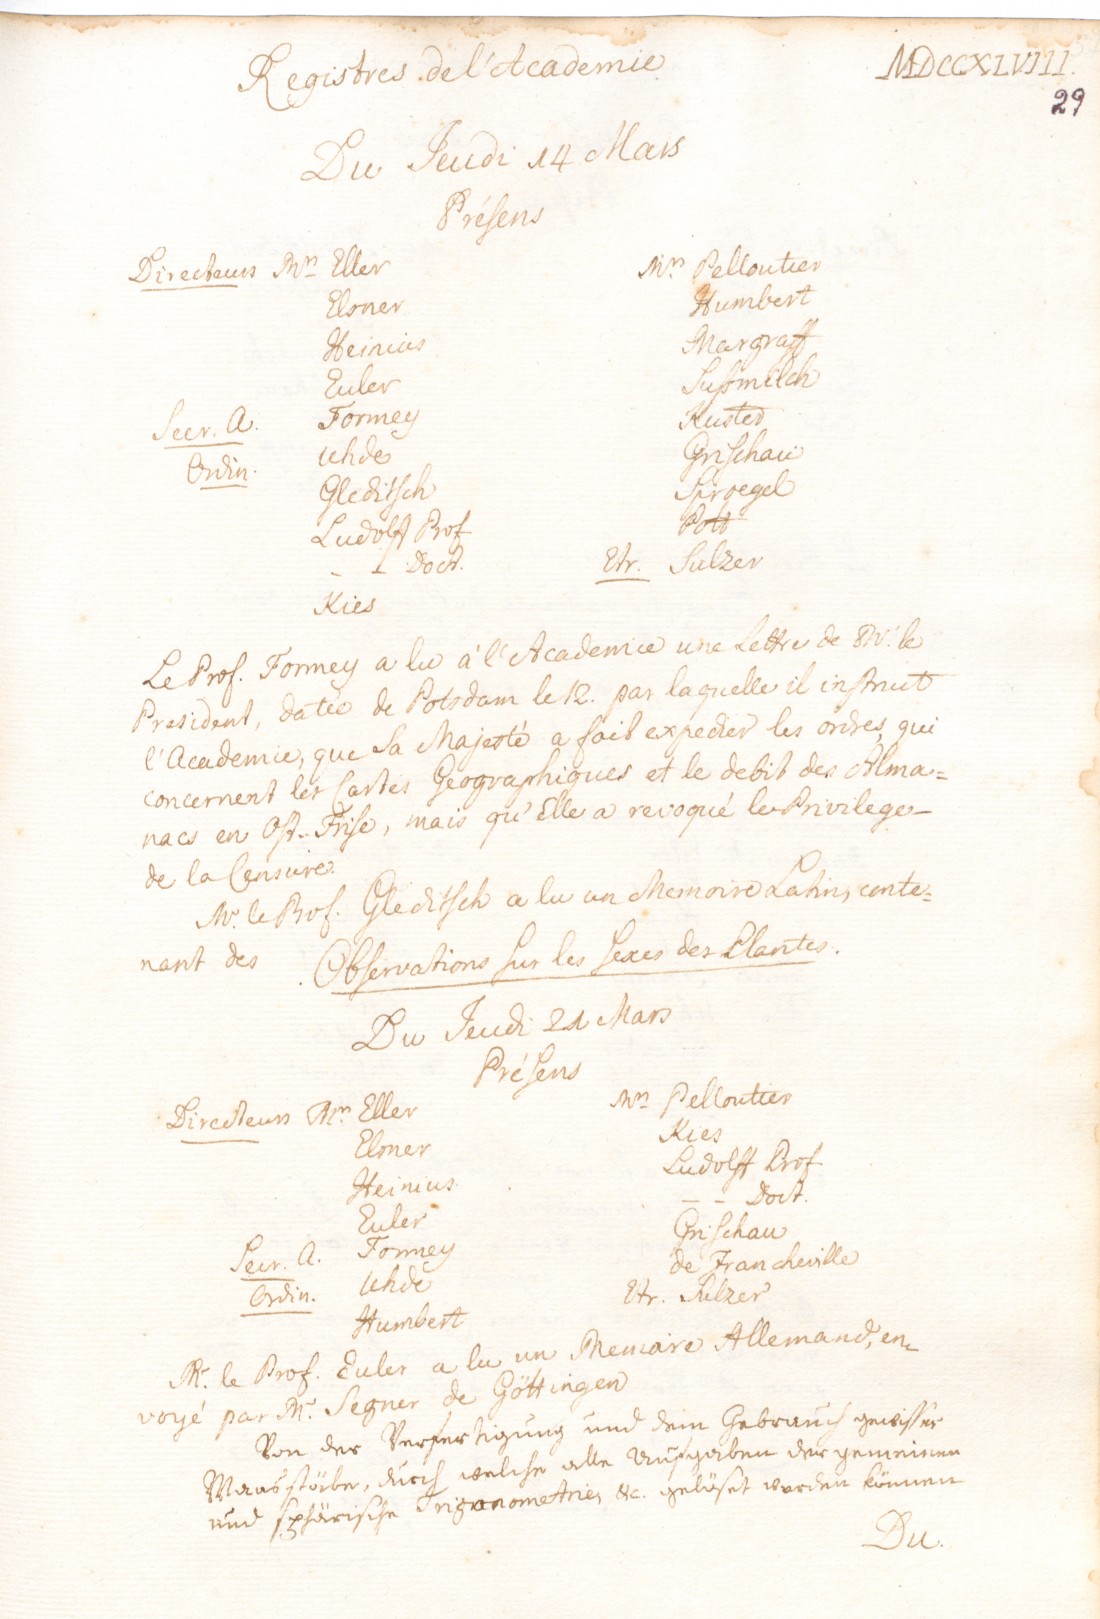 Registres de l'Academie
MDCCXLVIII.
29
Du Jeudi 14 Mars
Présens
Directeurs Mrs Eller
Elsner
Heinius
Euler
Secr. A. Formey
Ordin. Uhde
Gleditsch
Ludolff Prof
– – Doct.
Kies
Mrs Pelloutier
Humbert
Margraff
Sussmilch
Kuster
Grischau
Sproegel
Pott
Etr. Sulzer
Le Prof. Formey a lu à l'Academie une Lettre de Mr. le
President, datée de Potsdam le 12. par laquelle il instruit
l'Academie, que Sa Majesté a fait expedier les ordres, qui
concernent les Cartes Geographiques et le debit des Alma=
nacs en Ost-Frise, mais qu'Elle a revoqué le Privilege
de la Censure.
Mr. le Prof. Gleditsch a lu un Memoire Latin, conte=
nant des Observations sur les Sexes des Plantes.
Du Jeudi 21 Mars
Présens
Directeurs Mrs Eller
Elsner
Heinius
Euler
Secr. A. Formey
Ordin. Uhde
Humbert
Mrs Pelloutier
Kies
Ludolff Prof
– – Doct.
Grischau
de Francheville
Etr. Sulzer
Mr. le Prof. Euler a lu un Memoire Allemand, en=
voyé par Mr. Segner de Göttingen
Von der Verfertigung und dem Gebrauch gewisser
Maasstäbe, durch welche alle Aufgaben der gemeinen
und sphärische Trigonometrie, &c. gelöset werden können
Du.